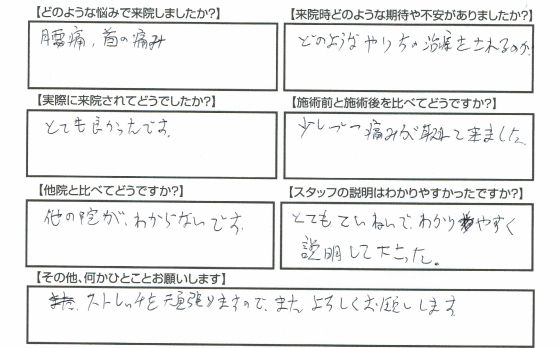 【どのような悩みで来院しましたか?】
腰痛,首の痛み
【来院時どのような期待や不安がありましたか?】
どのようなやりちの治療をされるのか
【実際に来院されてどうでしたか?】
とても良かったです。
【施術前と施術後を比べてどうですか?】
少しづつ痛みが取れて来ました。
【他院と比べてどうですか?】
他の院が、わからないです。
【スタッフの説明はわかりやすかったですか?】
とてもていねいで、わかりやすく
説明して下さった。
【その他、何かひとことお願いします】
ストレッチを頑張りますので、また よろしくお願いします。